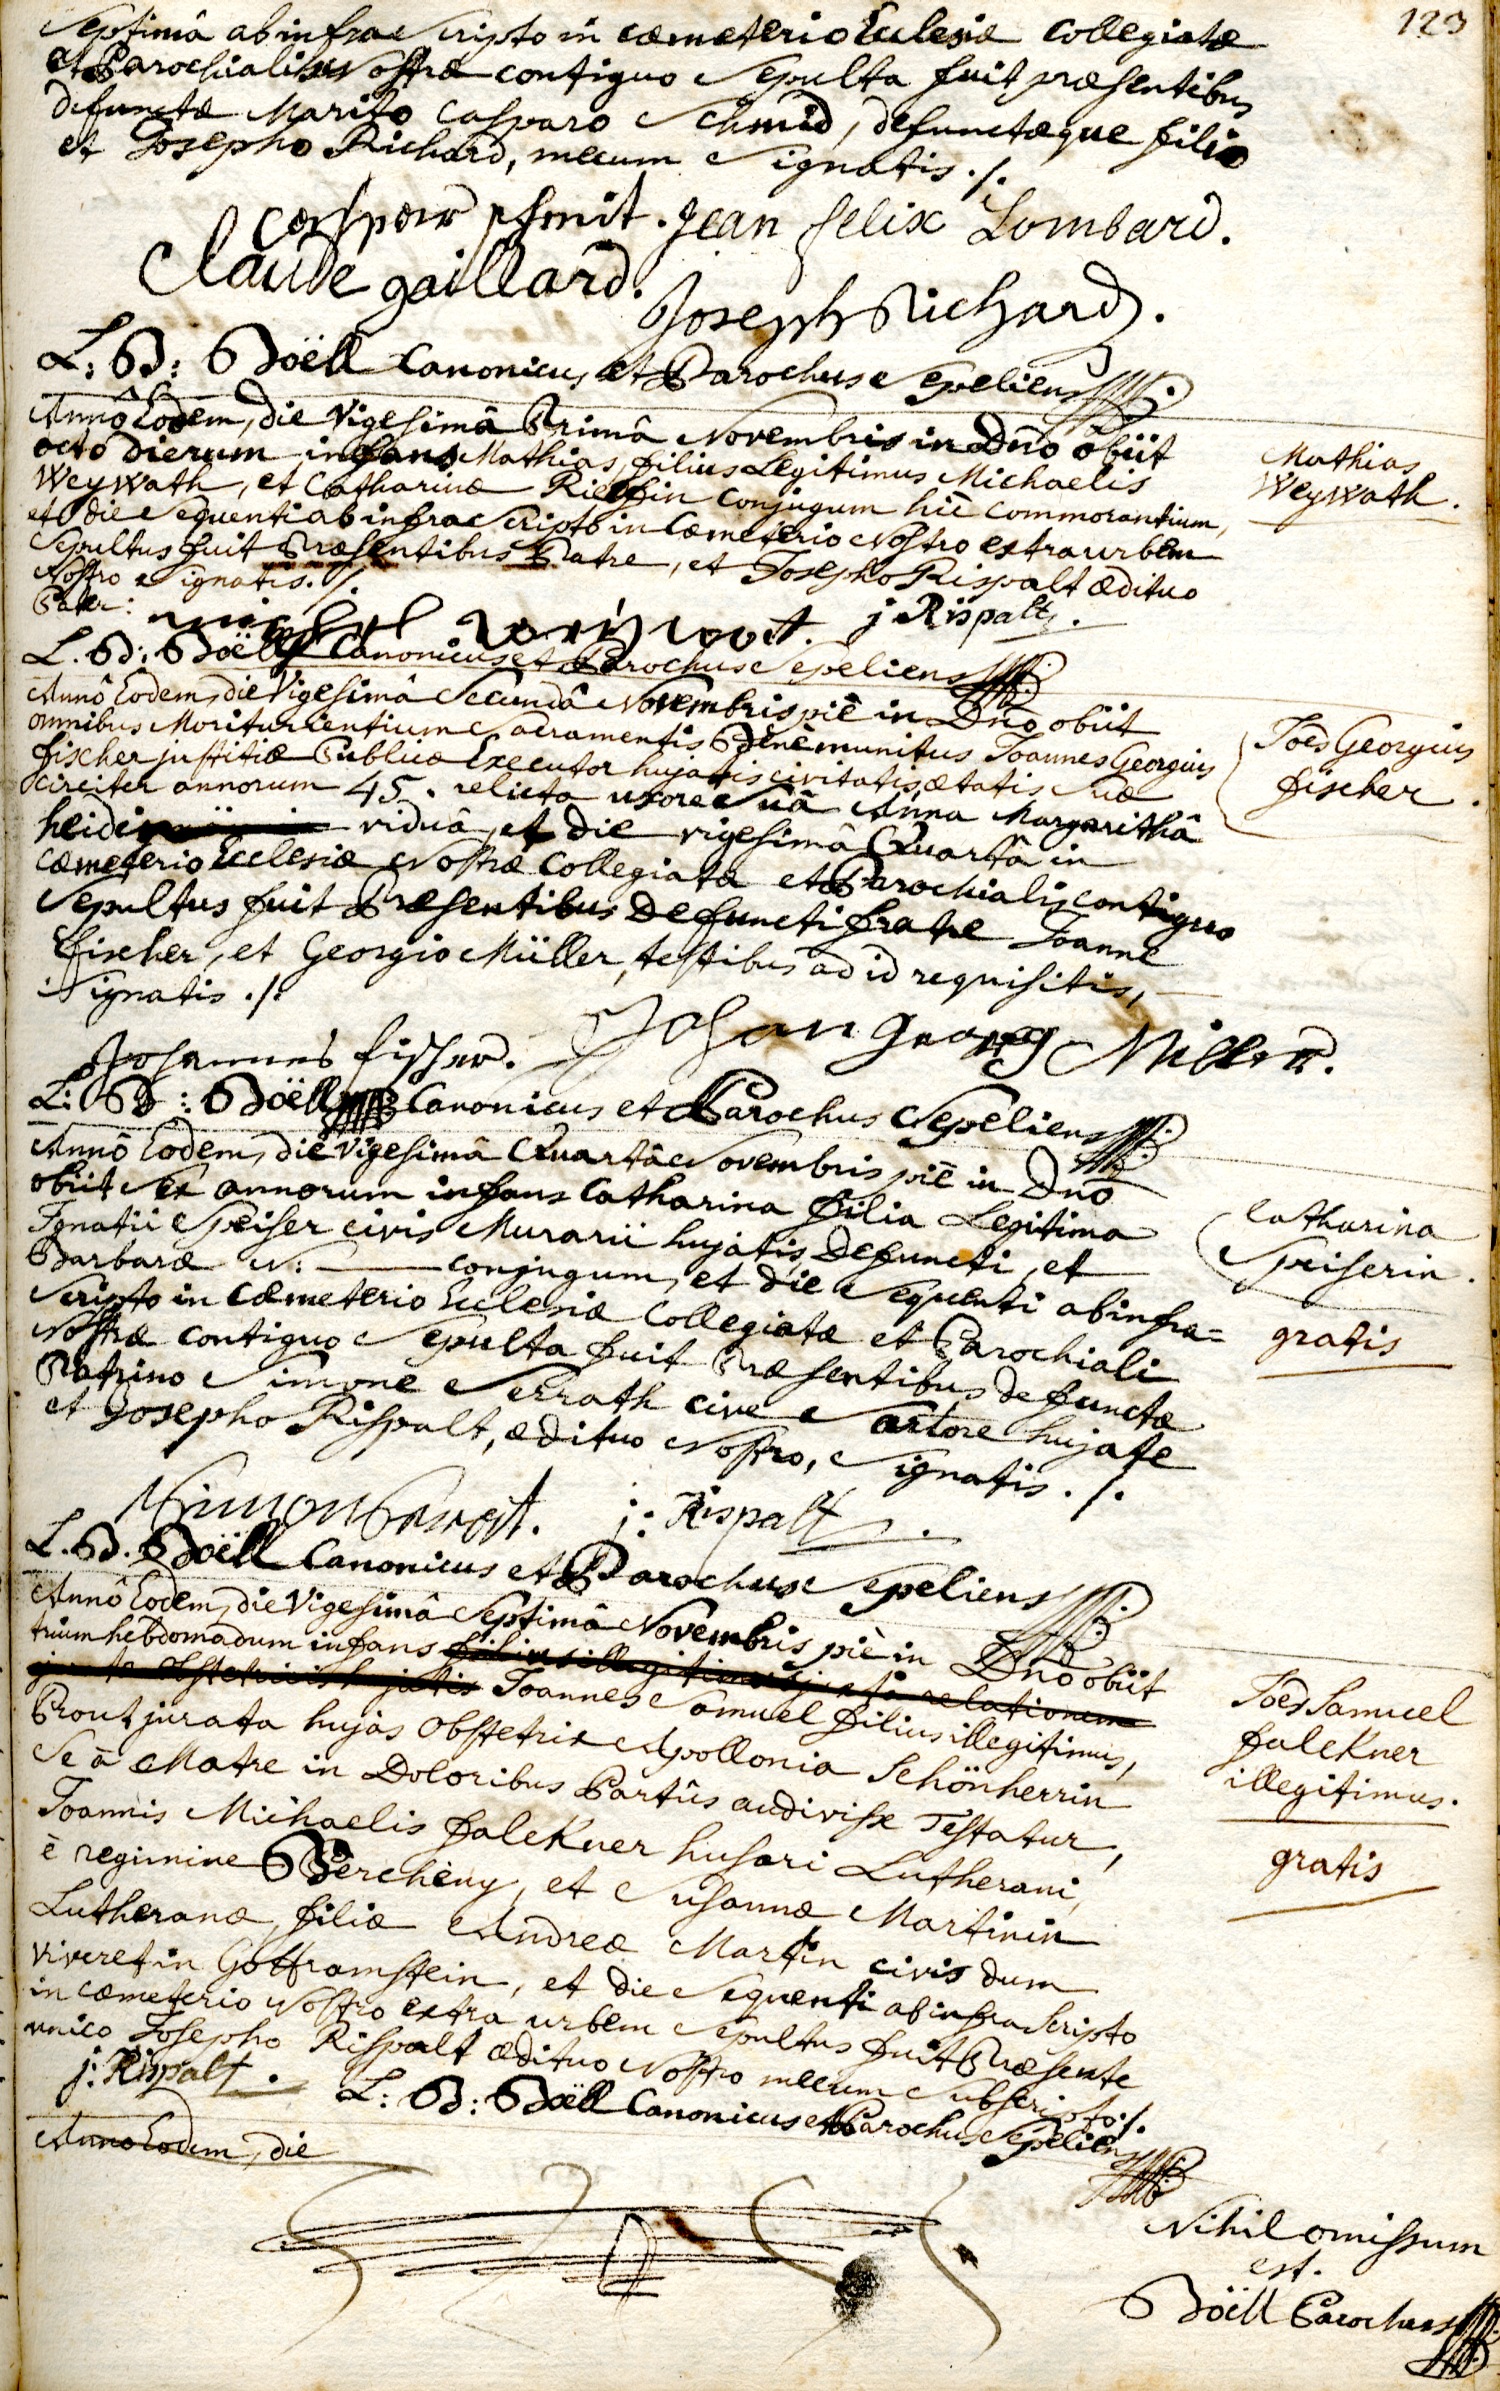 123
Septimâ ab infra Scripto in cæmeterio Ecclesiæ Collegiatæ
et Parochialis Nostræ contiguo Sepulta fuit præsentibus
defunctæ Marito Casparo Schmid, defunctæque filio
et Josepho Richard, mecum Signatis ./.
Jean felix Lombard.
Claude gaillard.
Joseph Richard.
L: B: Böëll Canonicus et Parochus Sepeliens
Annô Eodem, die Vigesimâ Primâ Novembris in Dño obiit
octo dierum infans Mathias, filius Legitimus Michaelis
Weywath, et Catharinæ conjugum hic commorantium,
et die Sequenti ab infra Scripto in Cæmeterio Nostro extra urbem
Sepultus fuit Præsentibus Patre, et Josepho Rispalt ædituo
Nostro Signatis. /.
Mathias
Weywath.
Pater: j Rispalt.
L. B: Böëll Canonicus et Parochus Sepeliens
Annô Eodem, die Vigesimâ Secundâ Novembris piè in Dño obiit
omnibus Moriturientium Sacramentis Benè munitus Joannes Georgius
fischer justitiæ Publicæ Executor hujatis civitatis, ætatis Suæ
circiter annorum 45. relicta uxore Suâ Anna Margarithâ
viduâ, et die vigesimâ Quartâ in
cæmeterio Ecclesiæ Nostræ Collegiatæ et Parochialis contiguo
Sepultus fuit Præsentibus Defuncti fratre Joanne
Fischer, et Georgio Müller, testibus ad id requisitis,
Signatis ./.
Joēs Georgius
fischer.
Johannes fischer. Johan Georg Miller.
L: B: Böëll Canonicus et Parochus Sepeliens
Annô Eodem, die Vigesimâ Quartâ Novembris piè in Dño
obiit Sex annorum infans Catharina filia Legitima
Ignatii Speiser civis Murarii hujatis Defuncti, et
Barbaræ N: conjugum, et die Sequenti ab infra=
Scripto in Cæmeterio Ecclesiæ Collegiatæ et Parochiali
Nostræ contiguo Sepulta fuit Præsentibus defunctæ
Patrino Simone Serrath cive Sartore hujate
et Josepho Rispalt, ædituo Nostro, Signatis ./.
Catharina
Speiserin.
gratis
j: Rispalt.
L. B. Böëll Canonicus et Parochus Sepeliens
Annô Eodem, die Vigesimâ Septimâ Novembris piè in Dño obiit
trium hebdomadum infans filius illegitimus, juxta relationem
juxta obstetricis hujatis Joannes Samuel filius illegitimus,
Prout jurata hujas Obstetrix Apollonia Schönherrin
Se à Matre in Doloribus Partûs audivisse Testatur,
Joannis Michaelis falckner husari Lutherani,
è regimine Bercheny, et Susannæ Martinin
Lutheranæ, filiæ Andreæ Martin civis dum
viveret in Gottramstein, et die Sequenti ab infra Scripto
in cæmeterio Nostro extra urbem Sepultus fuit Præsente
unico Josepho Rispalt ædituo Nostro mecum Subscripto ./.
Joēs Samuel
falckner
illegitimus.
gratis
j: Rispalt.
L: B: Böëll Canonicus et Parochus Sepeliens
Anno Eodem, die
Nihil omissum
est.
Böëll Parochus